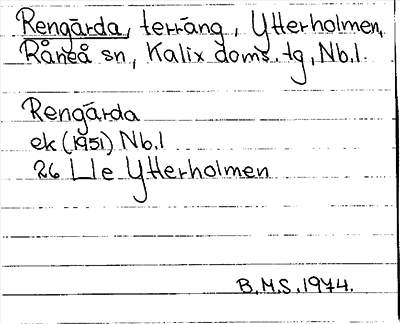 Rengårda, terräng, Ytterholmen,
Råneå sn, Kalix doms. tg, Nb.l.
Rengårda
ek (1951) Nb.l
26 L1e Ytterholmen
B.M.S. 1974.